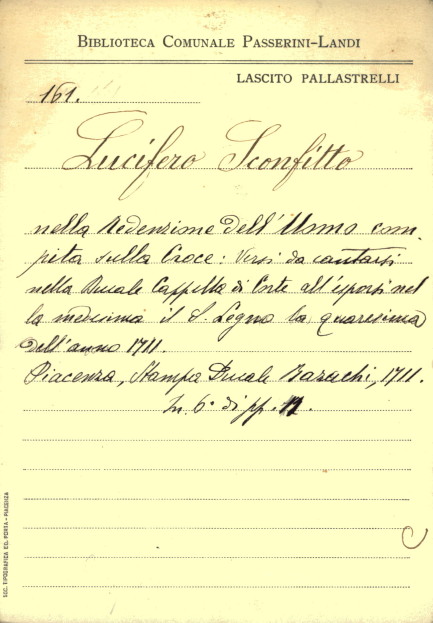 BIBLIOTECA COMUNALE PASSERINI-LANDI
LASCITO PALLASTRELLI
161.
Lucifero Sconfitto
nella Redenzione dell'Uomo com-
pita sulla Croce: Versi da cantarsi
nella Ducale Cappella di Corte all'esporsi nel
la medesima il S. Legno la quaresima
dell'anno 1711.
Piacenza, Stampa Ducale Bazachi, 1711.
In 6° di pp.
SOC. TIPOGRAFICA ED. PORTA - PIACENZA